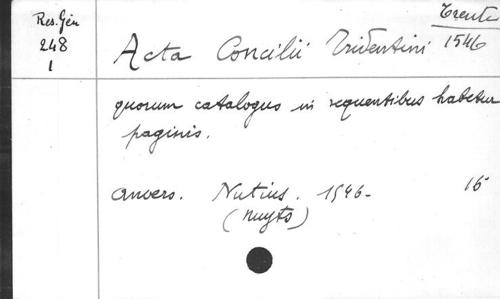 Res. Gén
248
1
Trente
1546
Acta Concilii Tridentini
quorum catalogus in sequentibus habetur
paginis.
Anvers. Nutius. 1546- 16°
(Nuyts)